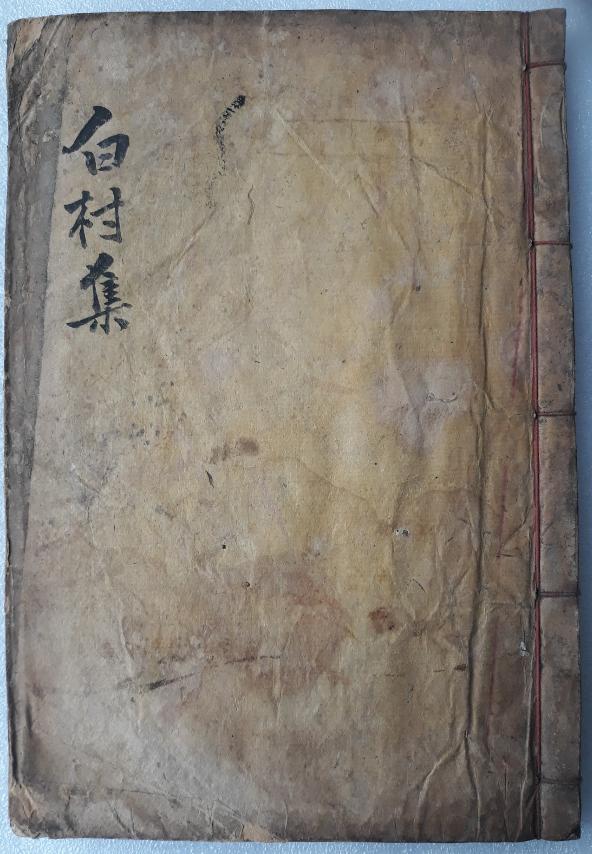 白村集